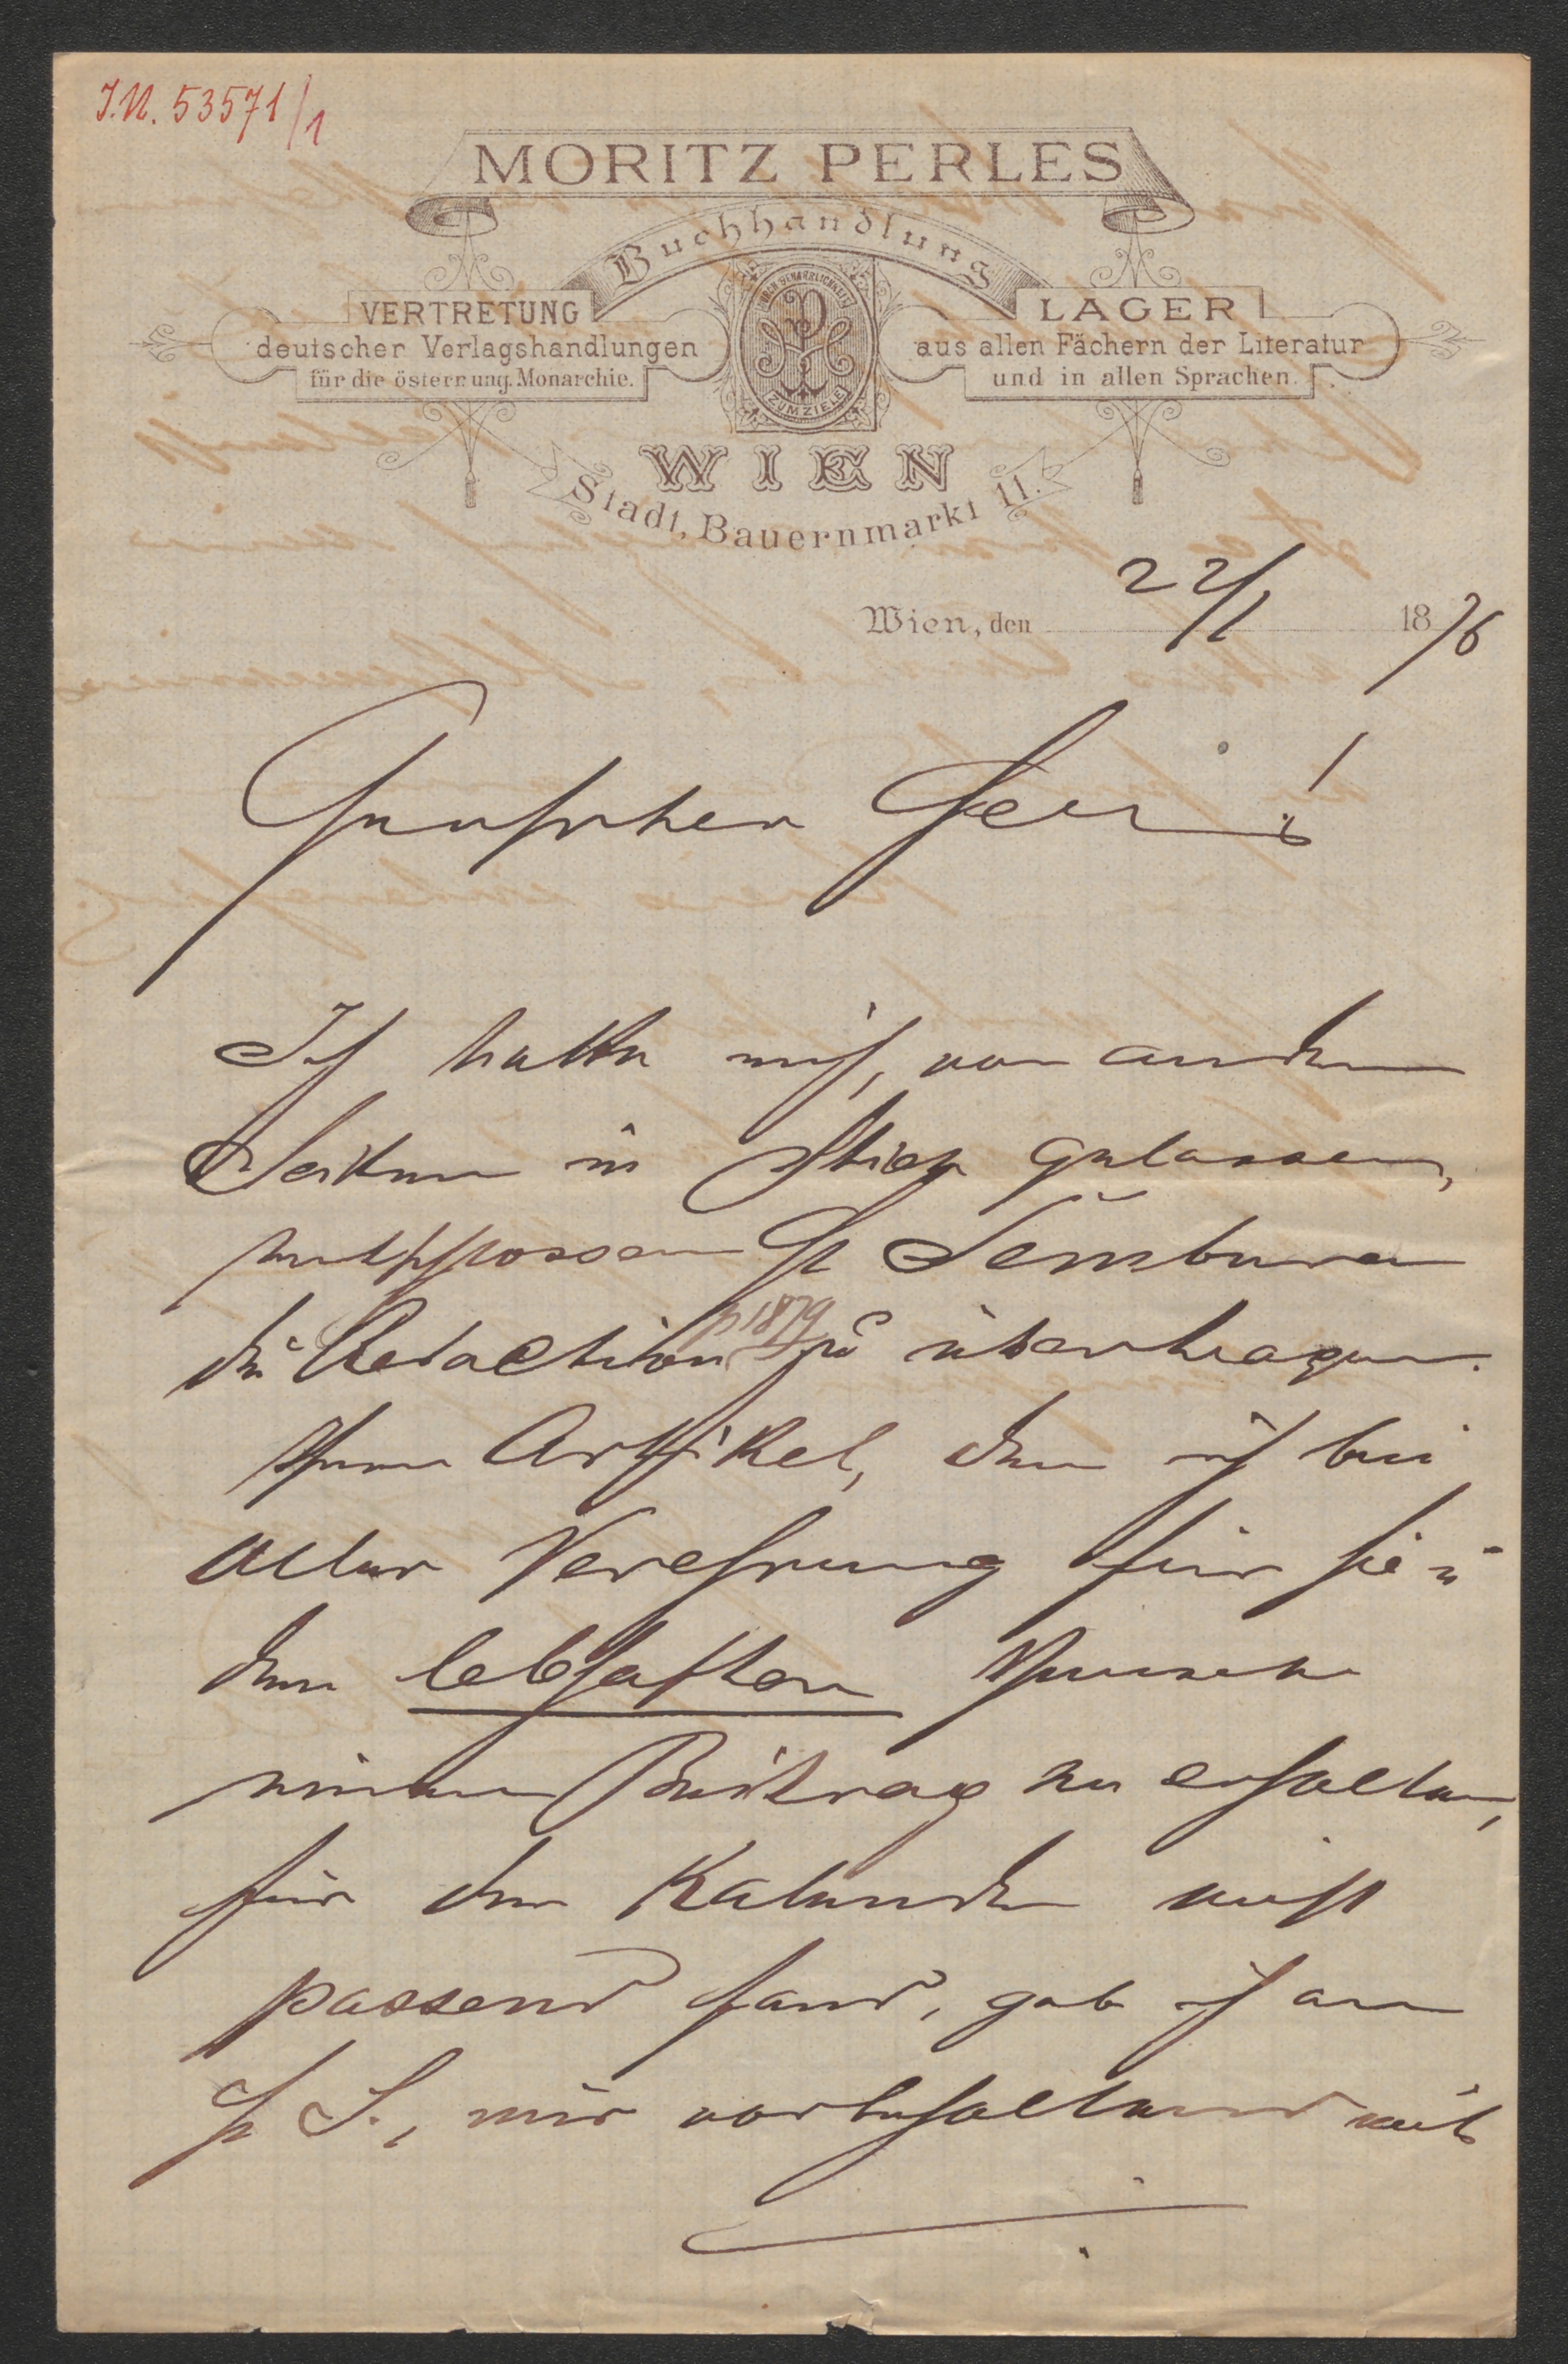 J.N. 53571/1
MORITZ PERLES
Buchhandlung
VERTRETUNG
deutscher Verlagshandlungen
für die österr. ung. Monarchie.
DURCH BEHARRLICHKEIT
ZUM ZIELE
LAGER
aus allen Fächern der Literatur
und in allen Sprachen.
WIEN
Stadt, Bauernmarkt 11.
Wien, den 22/1 1876
Geehrter Herr!
Ich hatte mich, von anderen
Seiten in Stich gelassen,
entschlossen H
die Redaction p 1879 zu übertragen.
Ihren Artikel, den ich bei
aller Verehrung für Sie u
dem lebhaften Wunsche
einen Beitrag zu erhalten,
für den Kalender nicht
passend fand, gab ich an
H S., mir vorbehaltend mit